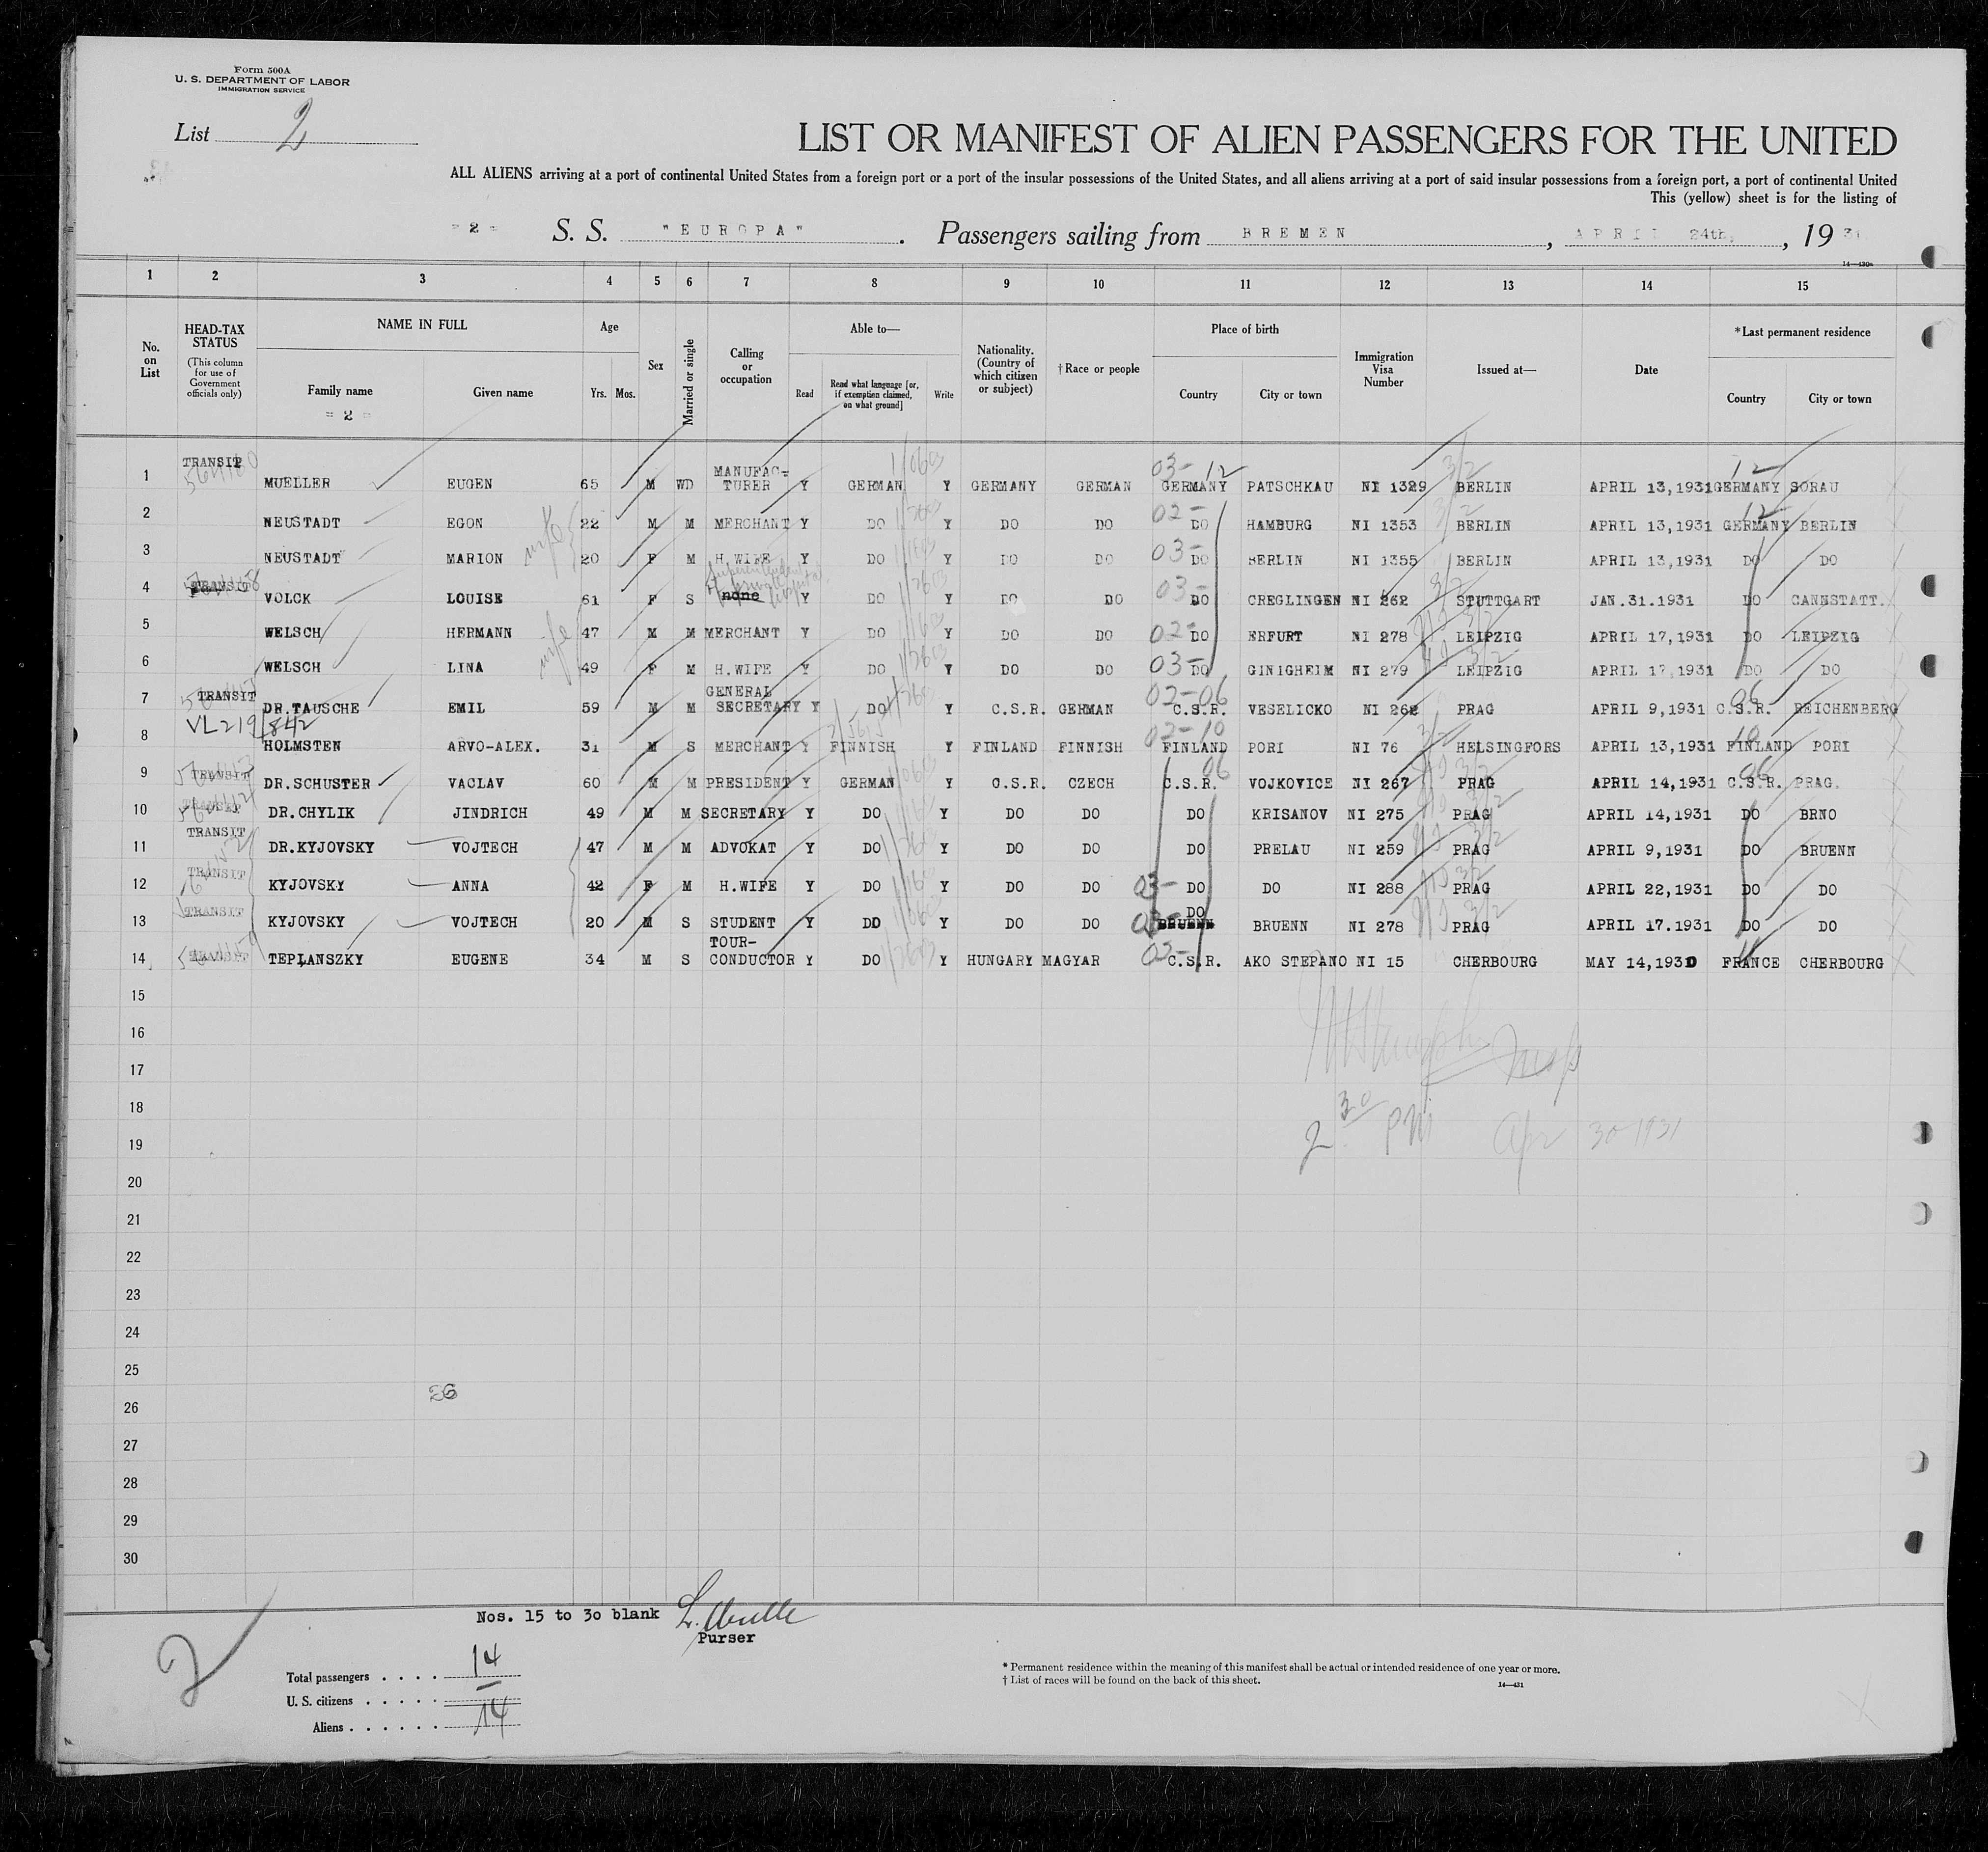 Form 500A
U. S. DEPARTMENT OF LABOR
IMMIGRATION SERVICE
List 2
LIST OR MANIFEST OF ALIEN PASSENGERS FOR THE UNITED
ALL ALIENS arriving at a port of continental United States from a foreign port or a port of the insular possessions of the United States, and all aliens arriving at a port of said insular possessions from a foreign port, a port of continental United
This (yellow) sheet is for the listing of
- 2 - S. S. "EUROPA". Passengers sailing from BREMEN, APRIL 24th, 1931
14—430a
1 2 3 4 5 6 7 8 9 10 11 12 13 14 15
No. on List
HEAD-TAX STATUS
(This column for use of Government officials only)
NAME IN FULL
Family name
Given name
= 2 =
Age
Yrs. Mos.
Sex
Married or single
Calling or occupation
Able to—
Read
Read what language [or, if exemption claimed, on what ground]
Write
Nationality. (Country of which citizen or subject)
† Race or people
Place of birth
Country
City or town
Immigration Visa Number
Issued at—
Date
* Last permanent residence
Country
City or town
1 TRANSIT MUELLER EUGEN 65 M WD MANUFAC-TURER Y GERMAN Y GERMANY GERMAN 03-12 GERMANY PATSCHKAU NI 1329 3/2 BERLIN APRIL 13,1931 12 GERMANY SORAU
2 NEUSTADT EGON 22 M M MERCHANT Y DO Y DO DO 02- DO HAMBURG NI 1353 3/2 BERLIN APRIL 13,1931 12 GERMANY BERLIN
3 NEUSTADT MARION wife 20 F M H.WIFE Y DO Y DO DO 03- DO BERLIN NI 1355 BERLIN APRIL 13,1931 DO DO
4 TRANSIT VOLCK LOUISE 61 F S none Superintendent of private hospital Y DO Y DO DO 03- DO CREGLINGEN NI 262 3/2 STUTTGART JAN.31.1931 DO CANNSTATT.
5 WELSCH HERMANN 47 M M MERCHANT Y DO Y DO DO 02- DO ERFURT NI 278 3/2 LEIPZIG APRIL 17,1931 DO LEIPZIG
6 WELSCH LINA wife 49 F M H.WIFE Y DO Y DO DO 03- DO GINIGHEIM NI 279 3/2 LEIPZIG APRIL 17,1931 DO DO
7 TRANSIT DR.TAUSCHE EMIL 59 M M GENERAL SECRETARY Y DO Y C.S.R. GERMAN 02-06 C.S.R. VESELICKO NI 262 PRAG APRIL 9,1931 06 C.S.R. REICHENBERG
8 VL219/842 HOLMSTEN ARVO-ALEX. 31 M S MERCHANT Y FINNISH Y FINLAND FINNISH 02-10 FINLAND PORI NI 76 HELSINGFORS APRIL 13,1931 10 FINLAND PORI
9 TRANSIT DR.SCHUSTER VACLAV 60 M M PRESIDENT Y GERMAN Y C.S.R. CZECH 06 C.S.R. VOJKOVICE NI 267 3/2 PRAG APRIL 14,1931 06 C.S.R. PRAG.
10 TRANSIT DR.CHYLIK JINDRICH 49 M M SECRETARY Y DO Y DO DO DO KRISANOV NI 275 3/2 PRAG APRIL 14,1931 DO BRNO
11 TRANSIT DR.KYJOVSKY VOJTECH 47 M M ADVOKAT Y DO Y DO DO DO PRELAU NI 259 3/2 PRAG APRIL 9,1931 DO BRUENN
12 TRANSIT KYJOVSKY ANNA 42 F M H.WIFE Y DO Y DO DO 03- DO DO NI 288 3/2 PRAG APRIL 22,1931 DO DO
13 TRANSIT KYJOVSKY VOJTECH 20 M S STUDENT Y DO Y DO DO 03- BRUENN DO BRUENN NI 278 3/2 PRAG APRIL 17.1931 DO DO
14 TRANSIT TEPLANSZKY EUGENE 34 M S TOUR-CONDUCTOR Y DO Y HUNGARY MAGYAR 03- C.S.R. AKO STEPANO NI 15 CHERBOURG MAY 14,1930 11 FRANCE CHERBOURG
15
16
17
18
2 30 PM Apr 30 1931
19
20
21
22
23
24
25
26
26
27
28
29
30
Nos. 15 to 30 blank
Purser
2
Total passengers . . . . 14
U. S. citizens . . . . . —
Aliens . . . . . . 14
* Permanent residence within the meaning of this manifest shall be actual or intended residence of one year or more.
† List of races will be found on the back of this sheet.
14—431